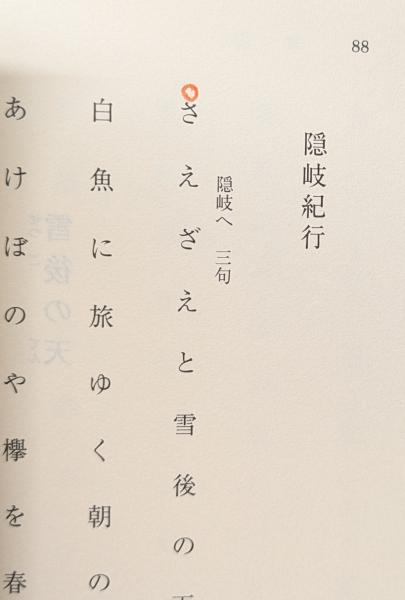 88
隠岐紀行
隠岐へ 三句
さえざえと雪後の
白魚に旅ゆく朝の
あけぼのや欅を春